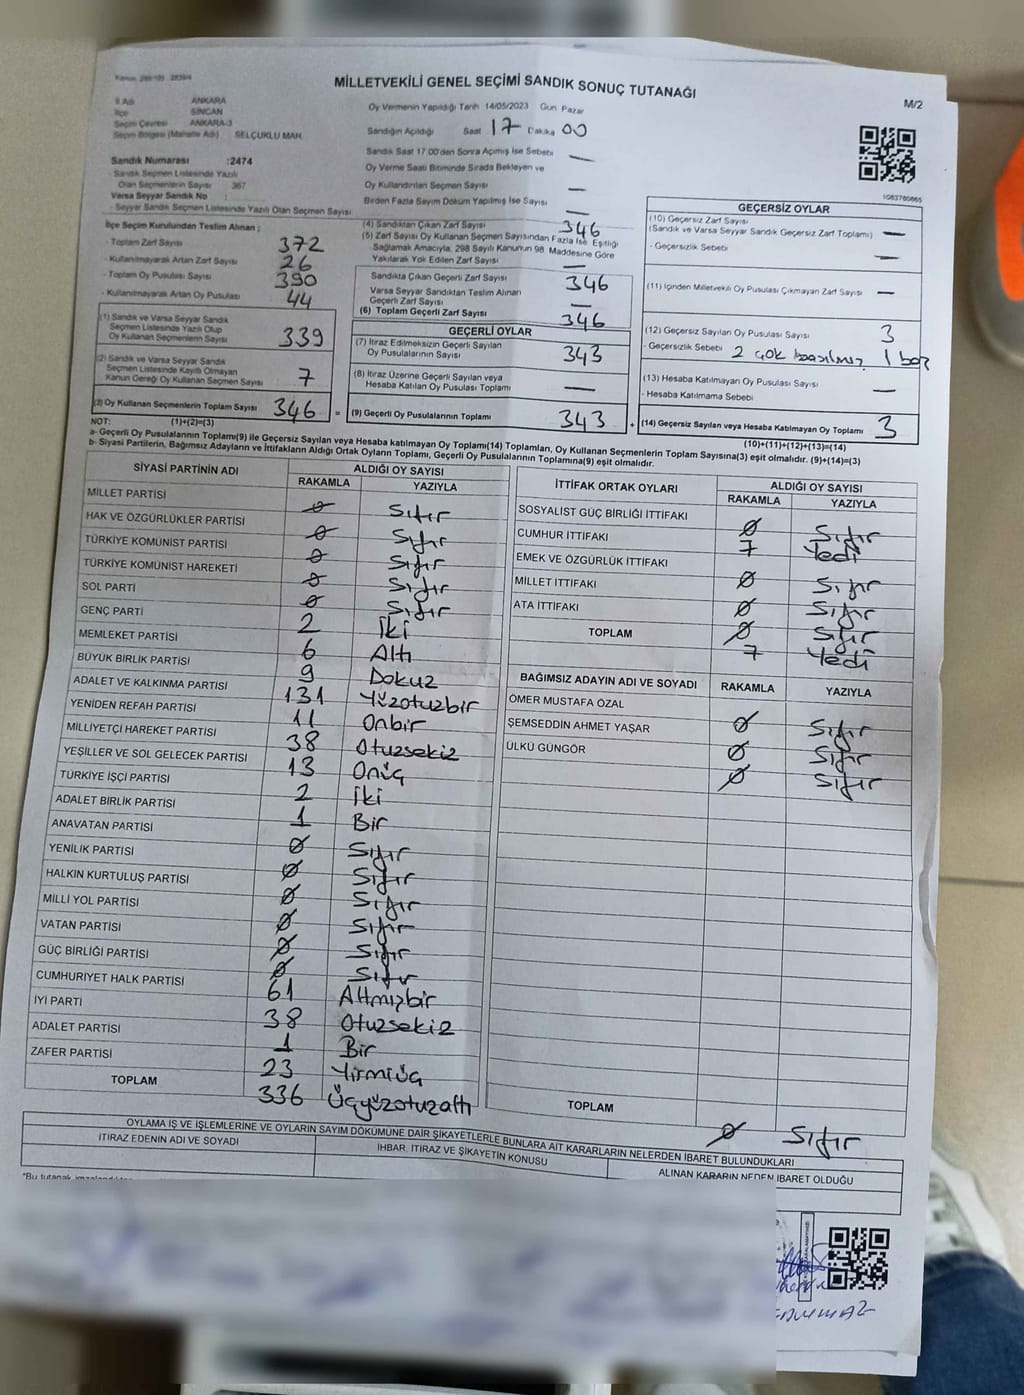 MİLLETVEKİLİ GENEL SEÇİMİ SANDIK SONUÇ TUTANAĞI
M/2
İl Adı ANKARA
İlçe SİNCAN
Seçim Çevresi ANKARA-3
Seçim Bölgesi (Mahalle Adı) SELÇUKLU MAH.
Sandık Numarası :2474
Sandık Seçmen Listesinde Yazılı
Olan Seçmenlerin Sayısı 367
Varsa Seyyar Sandık No :
- Seyyar Sandık Seçmen Listesinde Yazılı Olan Seçmen Sayısı
Oy Vermenin Yapıldığı Tarih 14/05/2023 Gün Pazar
Sandığın Açıldığı Saat 17 Dakika 00
Sandık Saat 17:00'den Sonra Açılmış İse Sebebi —
Oy Verme Saati Bitiminde Sırada Bekleyen ve
Oy Kullandırılan Seçmen Sayısı —
Birden Fazla Sayım Döküm Yapılmış İse Sayısı —
1083780865
İlçe Seçim Kurulundan Teslim Alınan ;
- Toplam Zarf Sayısı 372
- Kullanılmayarak Artan Zarf Sayısı 26
- Toplam Oy Pusulası Sayısı 390
- Kullanılmayarak Artan Oy Pusulası 44
(1) Sandık ve Varsa Seyyar Sandık
Seçmen Listesinde Yazılı Olup
Oy Kullanan Seçmenlerin Sayısı 339
(2) Sandık ve Varsa Seyyar Sandık
Seçmen Listesinde Kayıtlı Olmayan
Kanun Gereği Oy Kullanan Seçmen Sayısı 7
(3) Oy Kullanan Seçmenlerin Toplam Sayısı 346 =
(1)+(2)=(3)
(4) Sandıktan Çıkan Zarf Sayısı 346
(5) Zarf Sayısı Oy Kullanan Seçmen Sayısından Fazla İse, Eşitliği
Sağlamak Amacıyla, 298 Sayılı Kanunun 98. Maddesine Göre
Yakılarak Yok Edilen Zarf Sayısı —
Sandıkta Çıkan Geçerli Zarf Sayısı 346
Varsa Seyyar Sandıktan Teslim Alınan
Geçerli Zarf Sayısı —
(6) Toplam Geçerli Zarf Sayısı 346
GEÇERLİ OYLAR
(7) İtiraz Edilmeksizin Geçerli Sayılan
Oy Pusulalarının Sayısı 343
(8) İtiraz Üzerine Geçerli Sayılan veya
Hesaba Katılan Oy Pusulası Toplamı —
(9) Geçerli Oy Pusulalarının Toplamı 343 +
GEÇERSİZ OYLAR
(10) Geçersiz Zarf Sayısı
(Sandık ve Varsa Seyyar Sandık Geçersiz Zarf Toplamı) —
- Geçersizlik Sebebi —
(11) İçinden Milletvekili Oy Pusulası Çıkmayan Zarf Sayısı —
(12) Geçersiz Sayılan Oy Pusulası Sayısı 3
- Geçersizlik Sebebi 2 çok basılmış, 1 boş
(13) Hesaba Katılmayan Oy Pusulası Sayısı —
- Hesaba Katılmama Sebebi
(14) Geçersiz Sayılan veya Hesaba Katılmayan Oy Toplamı 3
(10)+(11)+(12)+(13)=(14)
NOT:
a- Geçerli Oy Pusulalarının Toplamı(9) ile Geçersiz Sayılan veya Hesaba katılmayan Oy Toplamı(14) Toplamları, Oy Kullanan Seçmenlerin Toplam Sayısına(3) eşit olmalıdır. (9)+(14)=(3)
b- Siyasi Partilerin, Bağımsız Adayların ve İttifakların Aldığı Ortak Oyların Toplamı, Geçerli Oy Pusulalarının Toplamına(9) eşit olmalıdır.
SİYASİ PARTİNİN ADI ALDIĞI OY SAYISI
RAKAMLA YAZIYLA
MİLLET PARTİSİ 0 Sıfır
HAK VE ÖZGÜRLÜKLER PARTİSİ 0 Sıfır
TÜRKİYE KOMÜNİST PARTİSİ 0 Sıfır
TÜRKİYE KOMÜNİST HAREKETİ 0 Sıfır
SOL PARTİ 0 Sıfır
GENÇ PARTİ 2 İki
MEMLEKET PARTİSİ 6 Altı
BÜYÜK BİRLİK PARTİSİ 9 Dokuz
ADALET VE KALKINMA PARTİSİ 131 Yüzotuzbir
YENİDEN REFAH PARTİSİ 11 Onbir
MİLLİYETÇİ HAREKET PARTİSİ 38 Otuzsekiz
YEŞİLLER VE SOL GELECEK PARTİSİ 13 Onüç
TÜRKİYE İŞÇİ PARTİSİ 2 İki
ADALET BİRLİK PARTİSİ 1 Bir
ANAVATAN PARTİSİ 0 Sıfır
YENİLİK PARTİSİ 0 Sıfır
HALKIN KURTULUŞ PARTİSİ 0 Sıfır
MİLLİ YOL PARTİSİ 0 Sıfır
VATAN PARTİSİ 0 Sıfır
GÜÇ BİRLİĞİ PARTİSİ 0 Sıfır
CUMHURİYET HALK PARTİSİ 61 Altmışbir
İYİ PARTİ 38 Otuzsekiz
ADALET PARTİSİ 1 Bir
ZAFER PARTİSİ 23 Yirmiüç
TOPLAM 336 Üçyüzotuzaltı
İTTİFAK ORTAK OYLARI ALDIĞI OY SAYISI
RAKAMLA YAZIYLA
SOSYALİST GÜÇ BİRLİĞİ İTTİFAKI 0 Sıfır
CUMHUR İTTİFAKI 7 Yedi
EMEK VE ÖZGÜRLÜK İTTİFAKI 0 Sıfır
MİLLET İTTİFAKI 0 Sıfır
ATA İTTİFAKI 0 Sıfır
TOPLAM 7 Yedi
BAĞIMSIZ ADAYIN ADI VE SOYADI RAKAMLA YAZIYLA
ÖMER MUSTAFA ÖZAL 0 Sıfır
ŞEMSEDDİN AHMET YAŞAR 0 Sıfır
ÜLKÜ GÜNGÖR 0 Sıfır
TOPLAM 0 Sıfır
OYLAMA İŞ VE İŞLEMLERİNE VE OYLARIN SAYIM DÖKÜMÜNE DAİR ŞİKAYETLERLE BUNLARA AİT KARARLARIN NELERDEN İBARET BULUNDUKLARI
İTİRAZ EDENİN ADI VE SOYADI
İHBAR, İTİRAZ VE ŞİKAYETİN KONUSU
ALINAN KARARIN NEDEN İBARET OLDUĞU